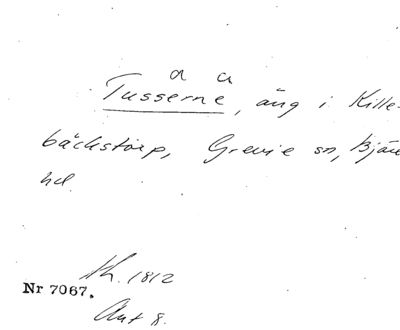 a a
Tusserne, äng i Kille-
bäckstorp, Grevie sn, Bjäre
hd
Nr 7067.
1812
Akt 8.